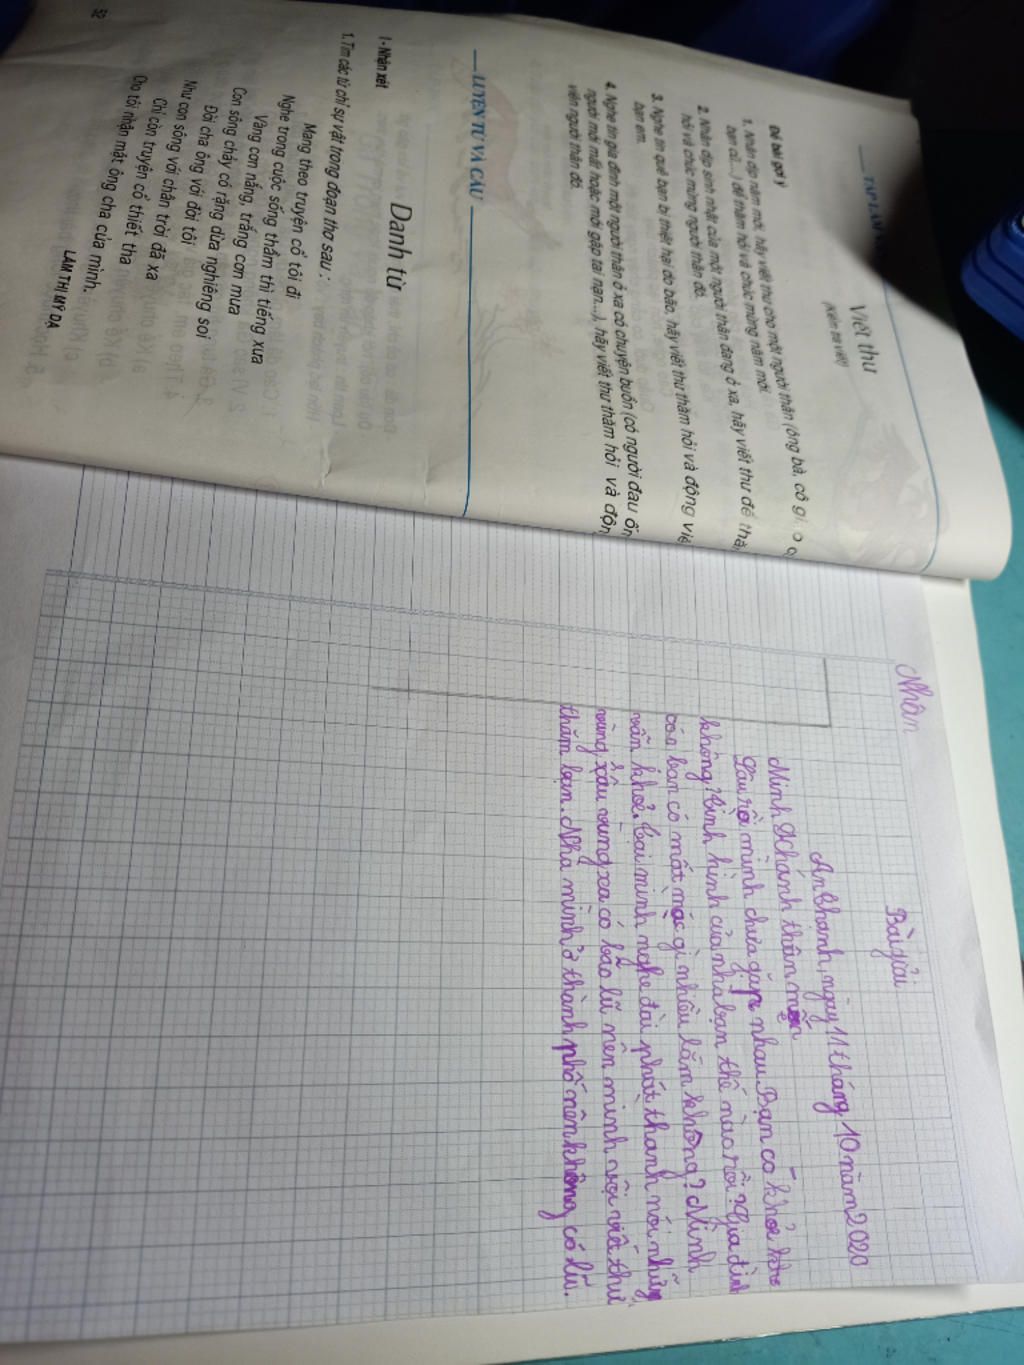 TẬP LÀM
Viết thư
(Kiểm tra viết)
Đề bài gợi ý
1. Nhân dịp năm mới, hãy viết thư cho một người thân (ông bà, cô giáo
bạn cũ,...) để thăm hỏi và chúc mừng năm mới.
2. Nhân dịp sinh nhật của một người thân đang ở xa, hãy viết thư để
hỏi và chúc mừng người thân đó.
3. Nghe tin quê bạn bị thiệt hại do bão, hãy viết thư thăm hỏi và động
bạn em.
4. Nghe tin gia đình một người thân ở xa có chuyện buồn (có người đau ốm
người mới mất hoặc mới gặp tai nạn...), hãy viết thư thăm hỏi và
viên người thân đó.
LUYỆN TỪ VÀ CÂU
Danh từ
I - Nhận xét
1. Tìm các từ chỉ sự vật trong đoạn thơ sau :
Mang theo truyện cổ tôi đi
Nghe trong cuộc sống thầm thì tiếng xưa
Vàng cơn nắng, trắng cơn mưa
Con sông chảy có rặng dừa nghiêng soi
Đời cha ông với đời tôi
Như con sông với chân trời đã xa
Chỉ còn truyện cổ thiết tha
Cho tôi nhận mặt ông cha của mình.
LÂM THỊ MỸ DẠ
52
Nhân
Bài giải
An Thạnh, ngày 11 tháng 10 năm 2020
Minh Khánh thân mến
Lâu rồi mình chưa gặp nhau Bạn có khỏe
không? Tình hình của nhà bạn thế nào rồi? Gia đình
của bạn có mất mác gì nhiều lắm không? Mình
vẫn khỏe. Tại mình nghe đài phát thanh nói những
vùng xấu vùng xa có bão lũ nên mình vội viết thư
thăm bạn. Nhà mình ở thành phố nên không có lũ.